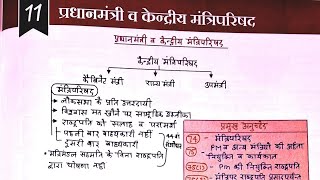 11 प्रधानमंत्री व केन्द्रीय मंत्रिपरिषद
प्रधानमंत्री व केन्द्रीय मंत्रिपरिषद
केन्द्रीय मंत्रिपरिषद
कैबिनेट मंत्री राज्य मंत्री उपमंत्री
मंत्रिपरिषद
लोकसभा के प्रति उत्तरदायी
विश्वास मत खोने पर सामूहिक
राष्ट्रपति को सलाह व परामर्श
पहली बार बाध्यकारी नहीं
दूसरी बार बाध्यकारी
सहमति के बिना राष्ट्रपति
द्वारा घोषणा नहीं
प्रमुख अनुच्छेद
74 - मंत्रिपरिषद
75 - PM व अन्य मंत्रियों की
नियुक्ति व कार्यकाल
PM की नियुक्ति राष्ट्रपति